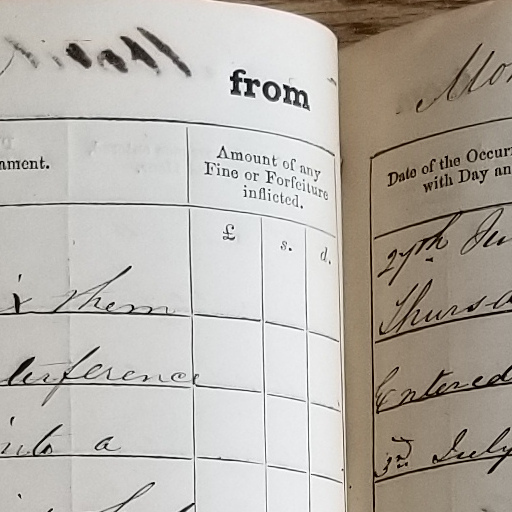 from
nment.
Amount of any
Fine or Forfeiture
inflicted.
£ s. d.
them
terference
into a
Mo
Date of the Occur
with Day an
27th Ju
Thursd
Entered
3rd July